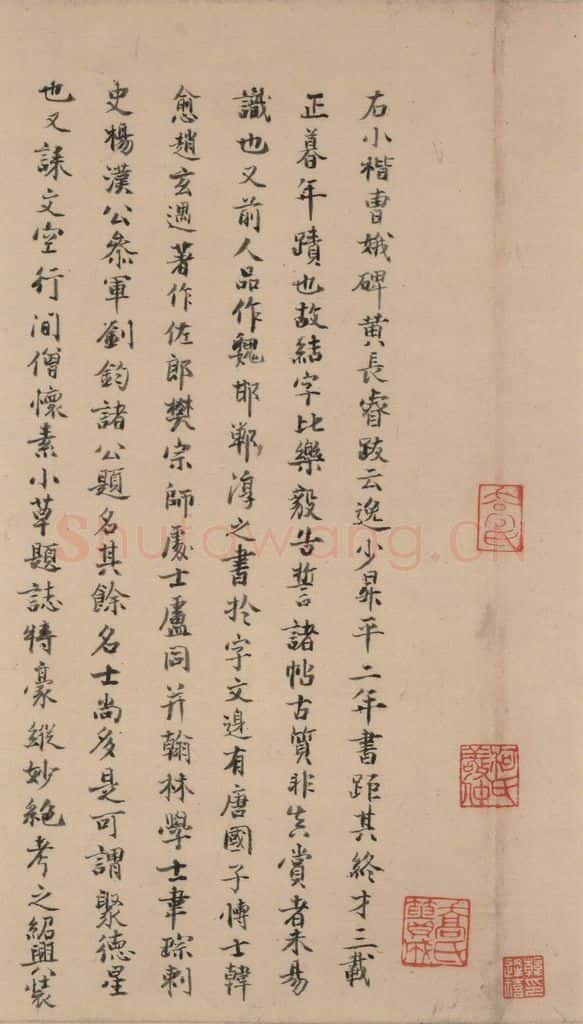 右小楷曹娥碑黄長睿跋云逸少昇平二年書距其終才三載
正暮年蹟也故結字比樂毅告誓諸帖古質非真賞者未易
識也又前人品作魏邯鄲淳之書於字文邊有唐國子博士韓
愈趙玄遇著作佐郎樊宗師處士盧同并翰林學士韋琮刺
史楊漢公叅軍劉鈞諸公題名其餘名士尚多是可謂聚德星
也又誄文空行間僧懷素小草題誌特豪縱妙絶考之紹興裝
高氏
柯氏
高氏
韓氏
逢禧
shufawang.cn